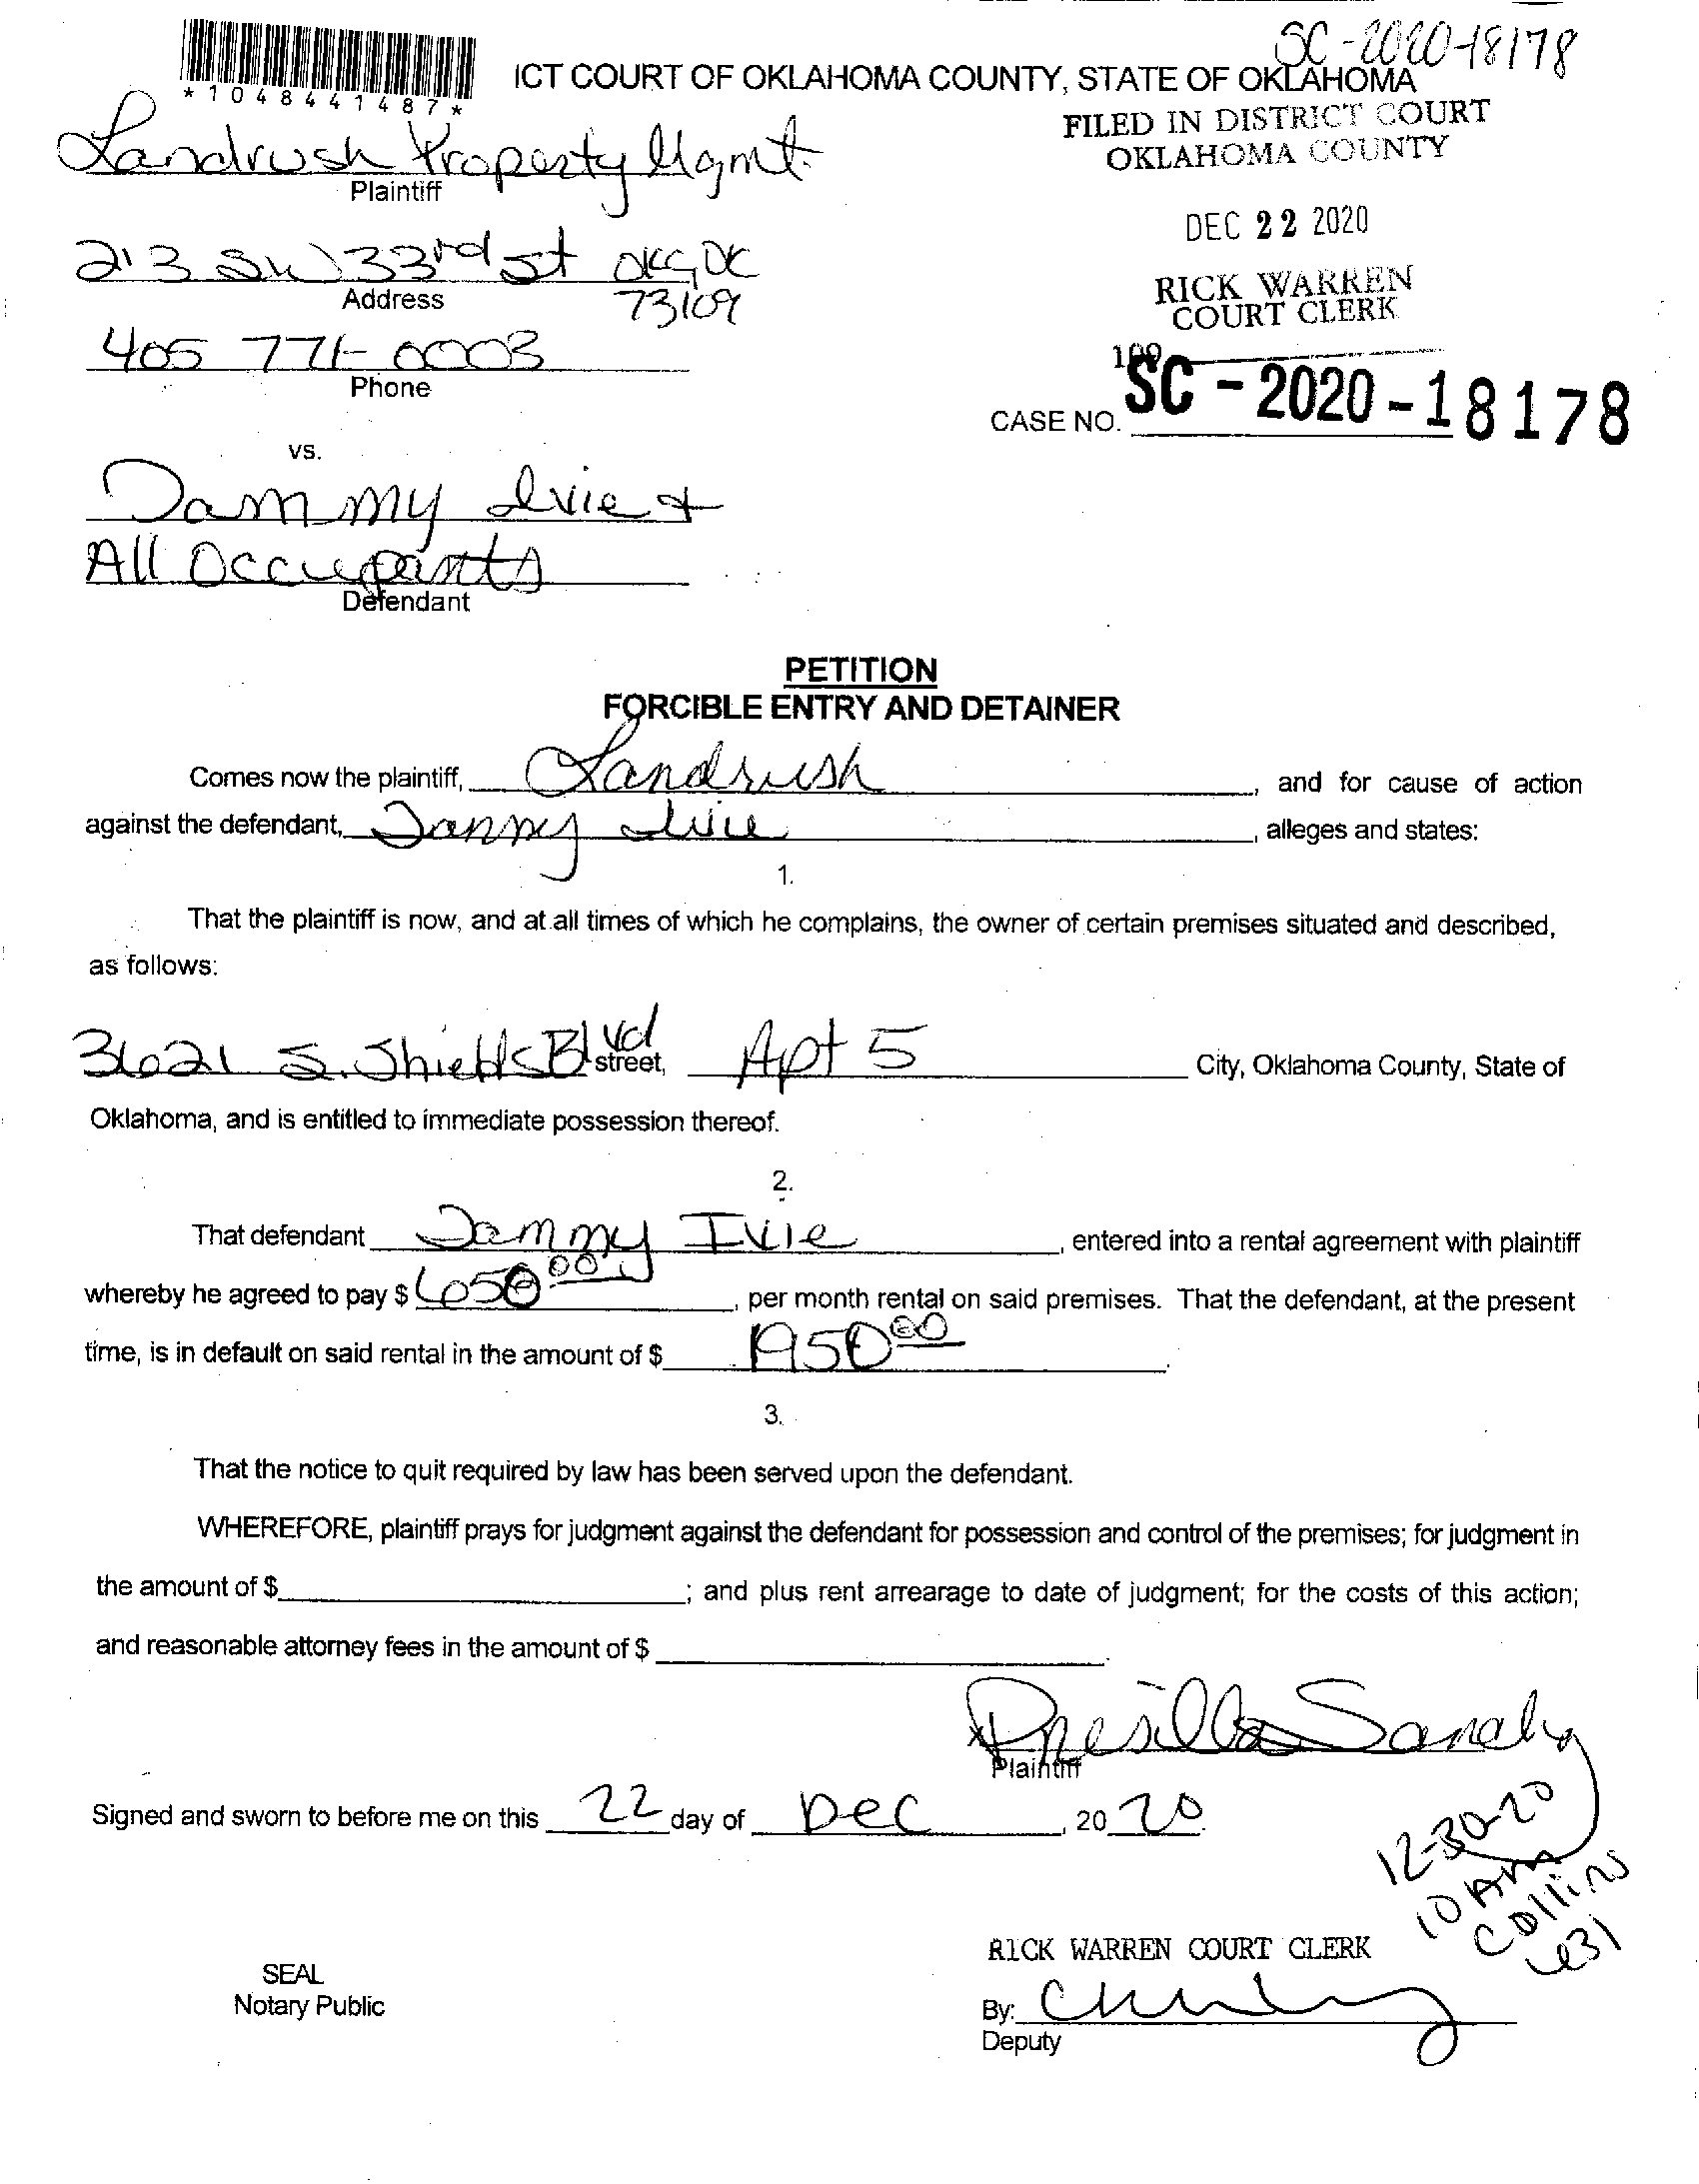 SC-2020-18178
*1048441487*
ICT COURT OF OKLAHOMA COUNTY, STATE OF OKLAHOMA
FILED IN DISTRICT COURT
OKLAHOMA COUNTY
Landrush Property Mgmt.
Plaintiff
DEC 22 2020
213 SW 33rd St OKC, OK
Address
73109
RICK WARREN
COURT CLERK
405 771-0003
Phone
109
CASE NO. SC-2020-18178
vs.
Tammy Ivie +
All Occupants
Defendant
PETITION
FORCIBLE ENTRY AND DETAINER
Comes now the plaintiff, Landrush, and for cause of action
against the defendant, Tammy Ivie, alleges and states:
1.
That the plaintiff is now, and at all times of which he complains, the owner of certain premises situated and described,
as follows:
3621 S. Shields Blvd street, Apt 5 City, Oklahoma County, State of
Oklahoma, and is entitled to immediate possession thereof.
2.
That defendant Tammy Ivie, entered into a rental agreement with plaintiff
whereby he agreed to pay $ 650 00, per month rental on said premises. That the defendant, at the present
time, is in default on said rental in the amount of $ 1950 00.
3.
That the notice to quit required by law has been served upon the defendant.
WHEREFORE, plaintiff prays for judgment against the defendant for possession and control of the premises; for judgment in
the amount of $ ; and plus rent arrearage to date of judgment; for the costs of this action;
and reasonable attorney fees in the amount of $ .
Plaintiff
Signed and sworn to before me on this 22 day of Dec, 20 20.
12-30-20
10 AM
Collins
RICK WARREN COURT CLERK
SEAL
Notary Public
By:
Deputy